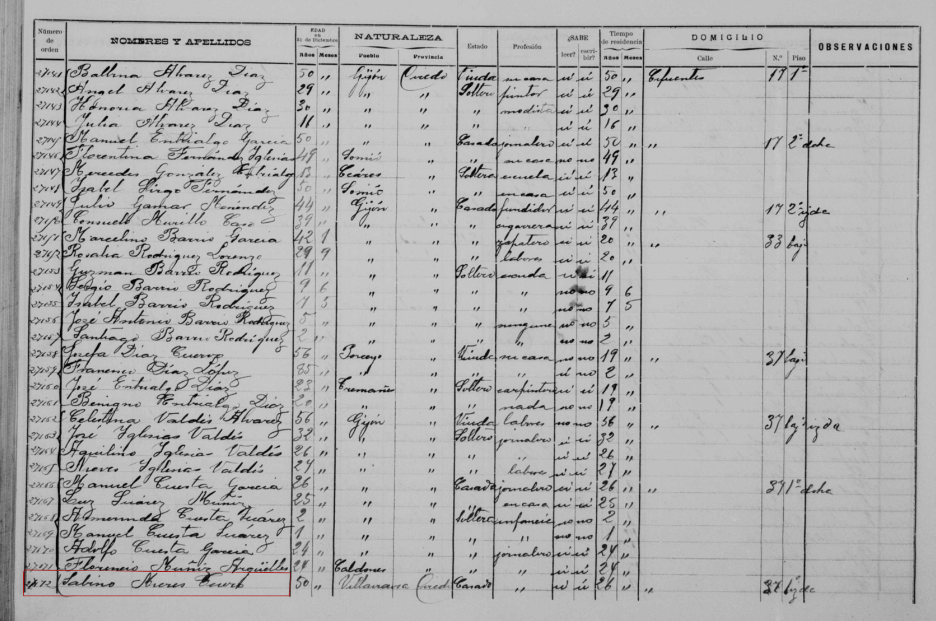 Número de orden NOMBRES Y APELLIDOS EDAD en 31 de Diciembre Años Meses NATURALEZA Pueblo Provincia Estado Profesión ¿SABE leer? escribir? Tiempo de residencia Años Meses DOMICILIO Calle N.º Piso OBSERVACIONES
27141 Balbina Alvarez Diaz 50 " Gijón Oviedo Viuda su casa si si 50 " Cifuentes 17 1º
27142 Angel Alvarez Diaz 29 " " " Soltero pintor si si 29 "
27143 Honoria Alvarez Diaz 30 " " " " modista si si 30 "
27144 Julia Alvarez Diaz " " " " " si si 16 "
27145 Manuel Entrialgo Garcia 50 " " Casado jornalero si si 50 " " 17 2º dcha
27146 Florentina Fernández Iglesias 49 " Somió " " su casa no no 49 "
27147 Mercedes Gonzalez Entrialgo 13 " Ceares " Soltera escuela si si 13 "
27148 Isabel Fernández 50 " Somió " " su casa si si 50 "
27149 Julio Menéndez 44 " Gijón " Casado fundidor si si 44 " " 17 2º izda
27150 Consuelo Murillo 39 " " " " cigarrera si si 39 "
27151 Marcelino Barrio Garcia 42 1 " " " zapatero si si 20 " " 33 bajo
27152 Rosalia Rodriguez Lorenzo 29 9 " " " labores si si 20 "
27153 Guzman Barrio Rodriguez 11 " " " Soltero si si 11
27154 Sergio Barrio Rodriguez 9 6 " " " " no no 9 6
27155 Isabel Barrio Rodriguez 7 5 " " " " no no 7 5
27156 José Antonio Barrio Rodriguez 5 " " " " ninguna no no 5 "
27157 Santiago Barrio Rodriguez 2 " " " " " no no 2 "
27158 Josefa Diaz Cuervo 56 " Porceyo " Viuda su casa no no 19 " " 37 bajo
27159 Francisco Diaz López " " " " " si no 2 "
27160 José Entrialgo Diaz 23 " Tremañes " Soltero carpintero si si 19 "
27161 Benigno Entrialgo Diaz 20 " " " " nada no no 19 "
27162 Celestina Valdés Alvarez 56 " Gijón " Viuda labores no no 56 " " 37 bajo izda
27163 José Iglesias Valdés 32 " " " Soltero jornalero si si 32 "
27164 Aquilino Iglesias Valdés 26 " " " " " si si 26 "
27165 Nieves Iglesias Valdés 27 " " " " labores si si 27 "
27166 Manuel Cuesta Garcia 26 " " " Casado jornalero si si 26 " " 37 1º dcha
27167 Luz Suárez Muñiz 25 " " " " su casa si si 25 "
27168 Hermerinda Cuesta Suárez 2 " " " Soltera infancia no no 2 "
27169 Manuel Cuesta Suarez 1 " " " " " no no 1 "
27170 Adolfo Cuesta Garcia 24 " " " " jornalero si si 24 "
27171 Florencio Muñiz Argüelles 24 " Caldones " " " si si 24 "
27172 Sabino Nieves 50 " Oviedo Casado " si si 26 " " 37 1º izda